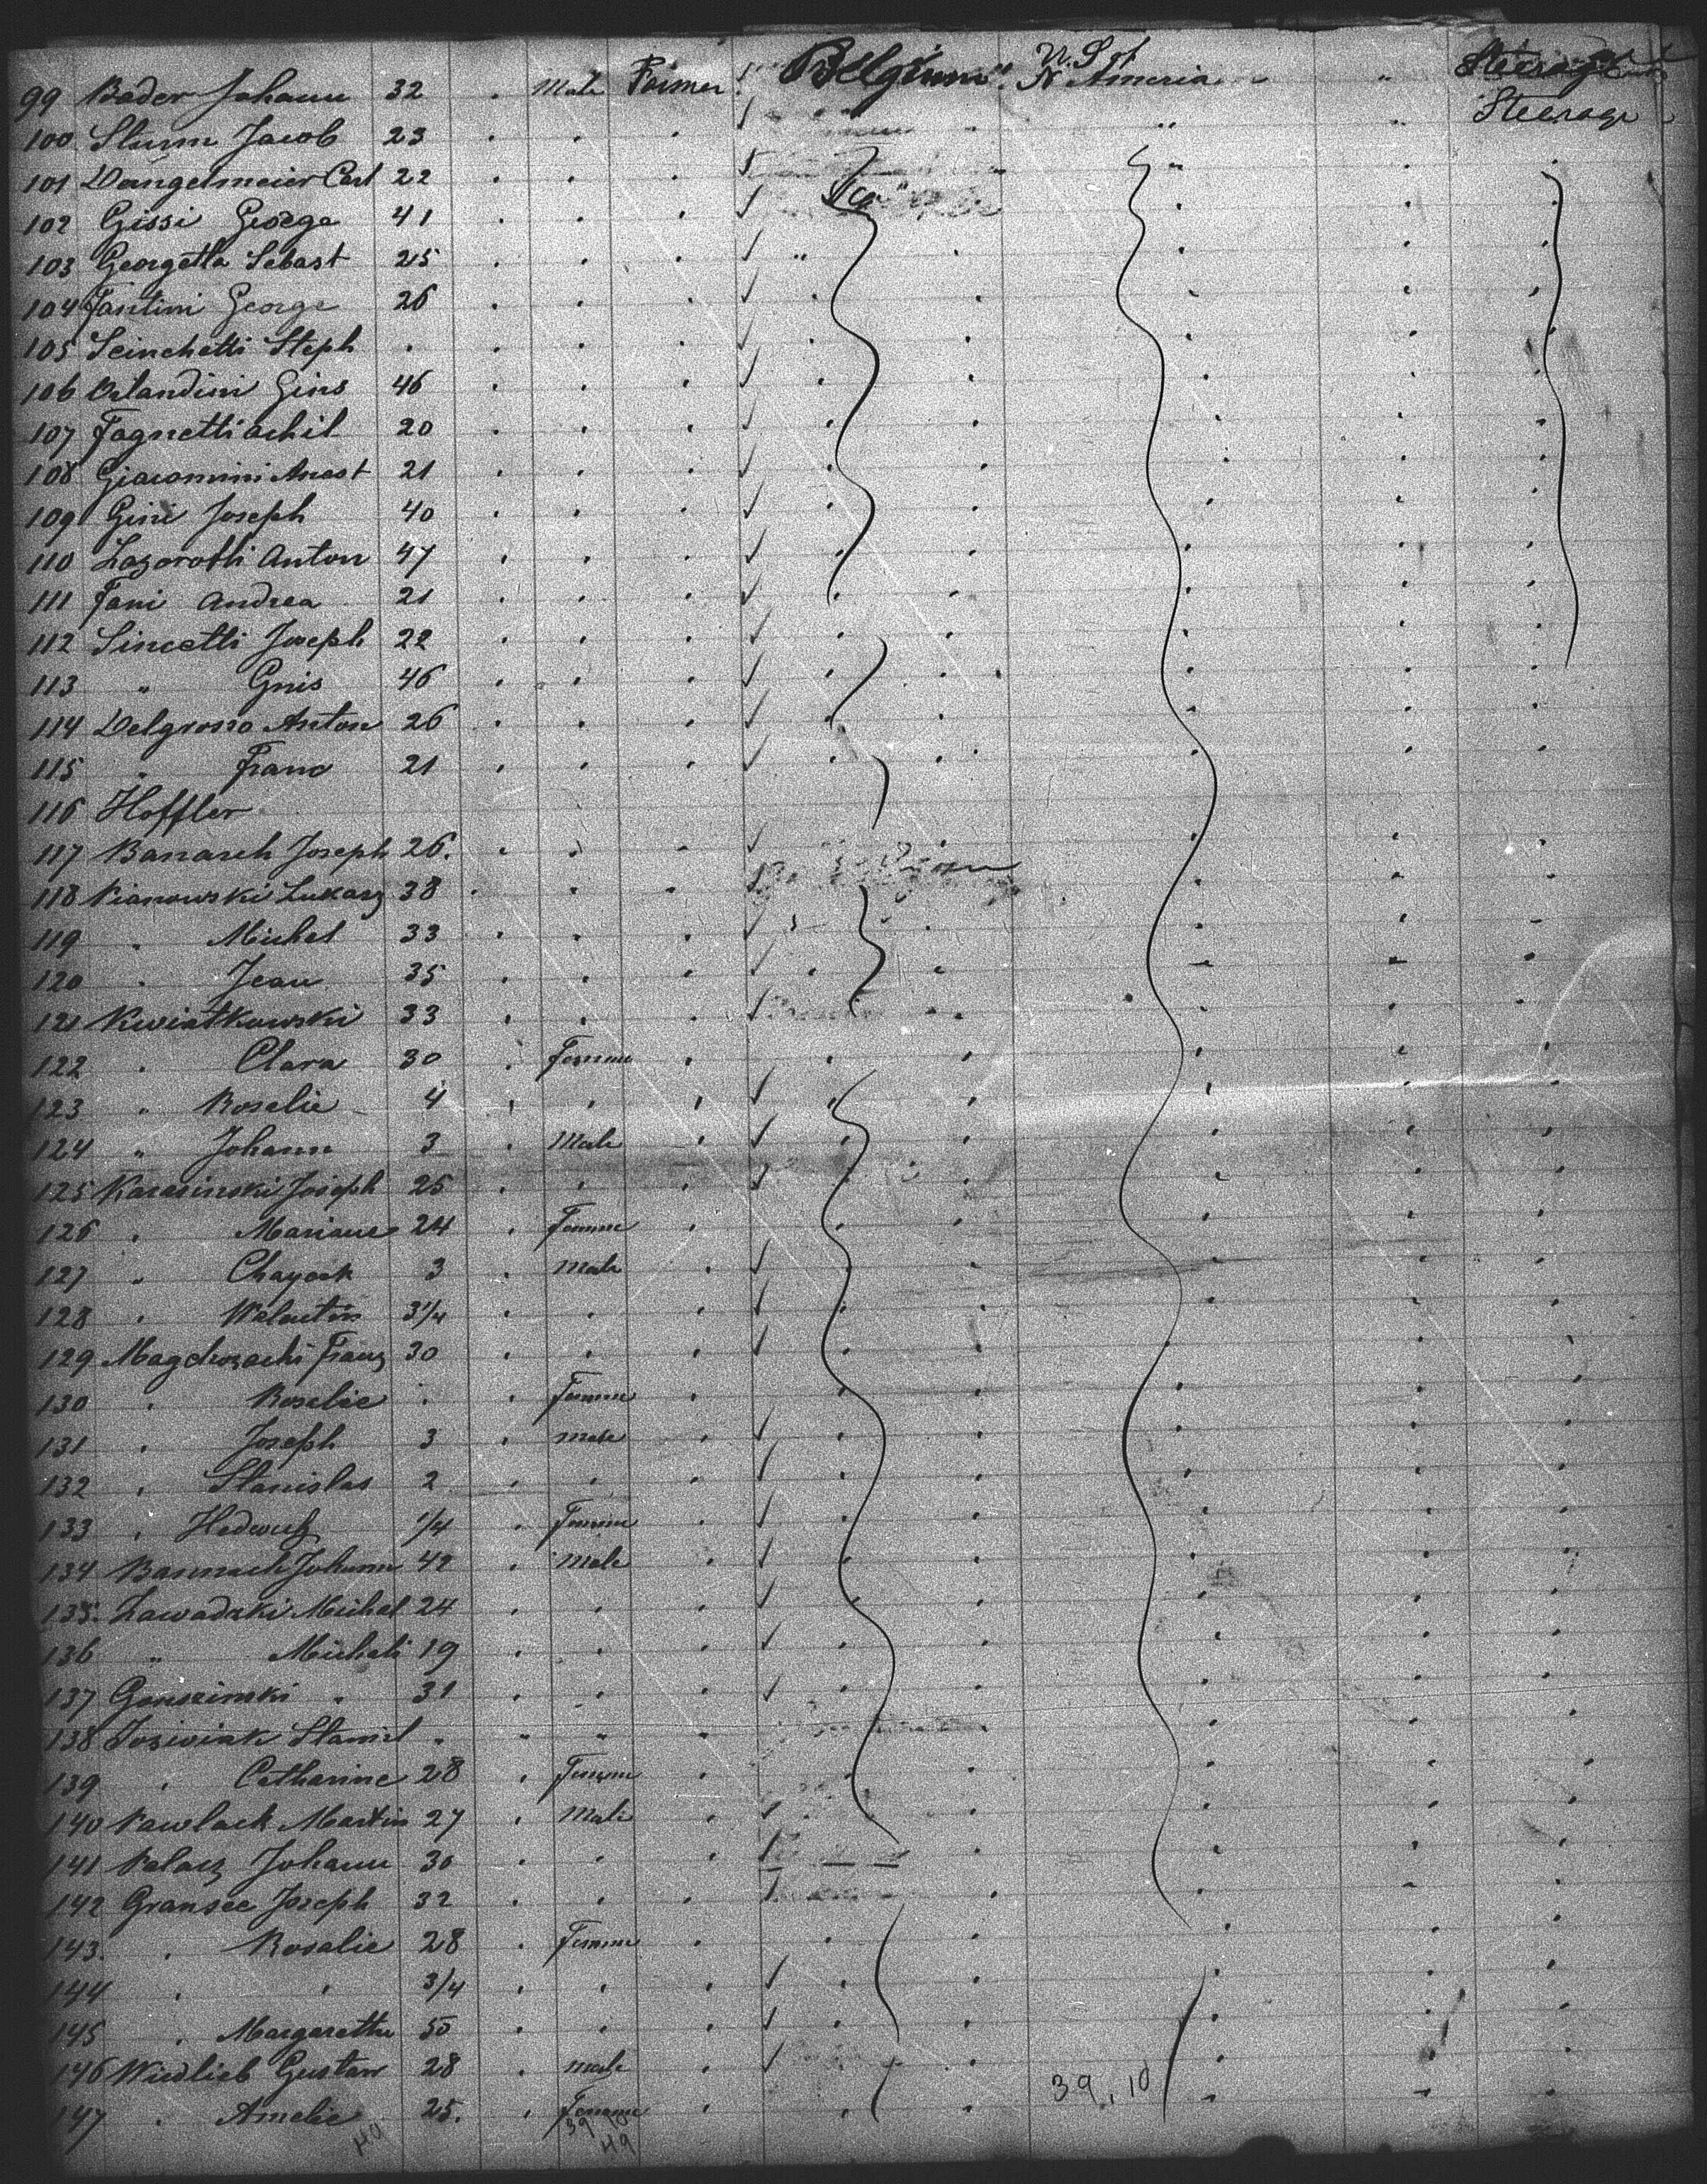 99 Bader Johann 32 " Male Farmer Belgium U. S. of N America " " Steerage
100 Sturm Jacob 23 " " " " " Steerage
101 Dangelmaier Carl 22 " " " " "
102 Gissi George 41 " " " " " "
103 Georgetta Sebast 25 " " " " " " "
104 Fantini George 26 " " " " " " "
105 Scinchetti Steph " " " " " " " "
106 Orlandini Gins 46 " " " " " " "
107 Fagnetti Achil 20 " " " " " " "
108 Giacomini Anast 21 " " " " " " "
109 Gini Joseph 40 " " " " " " "
110 Lazarotti Anton 47 " " " " " " "
111 Fani Andrea 21 " " " " " " "
112 Sincetti Joseph 22 " " " " " " "
113 " Gnis 46 " " " " " " "
114 Delgrosso Anton 26 " " " " " " "
115 " Franc 21 " " " " " " "
116 Hoffler
117 Banasch Joseph 26. " " " " " "
118 Pianowski Lukasz 38 " " " " " "
119 " Michel 33 " " " " " " "
120 " Jean 35 " " " " " " "
121 Kwiatkowski 33 " " " " " "
122 " Clara 30 " Femme " " " " " "
123 " Roselie 4 " " " " " " " "
124 " Johann 3 " Male " " " " " "
125 Karasinski Joseph 25 " " " " " "
126 " Mariane 24 " Femme " " " " " "
127 " Chayock 3 " Male " " " " "
128 " Walentin 3/4 " " " " " " " "
129 Magdwzachi Franz 30 " " " " " " "
130 " Roselie " " Femme " " " " " "
131 " Joseph 3 " Male " " " " " "
132 " Stanislas 2 " " " " " " " "
133 " Hedwick 1/4 " Femme " " " " " "
134 Bannach Johann 42 " Male " " " " " "
135. Zawadzki Michal 24 " " " " " " "
136 " Micheli 19 " " " " " " "
137 Gonszinski " 31 " " " " " " "
138 Josiviak Stanisl " " " " " " "
139 " Catharine 28 " Femme " " " " " "
140 Pawlack Martin 27 " Male " " " "
141 Palacz Johann 30 " " " " " "
142 Gransee Joseph 32 " " " " " " "
143. " Rosalie 28 " Femme " " " " " "
144 " " 3/4 " " " " " " " "
145 " Margarethe 50 " " " " " " " "
146 Wiedlieb Gustav 28 " Male " " " " "
147 " Amelie 25. " Femme " " " " " "
39,10
40
39 10
49